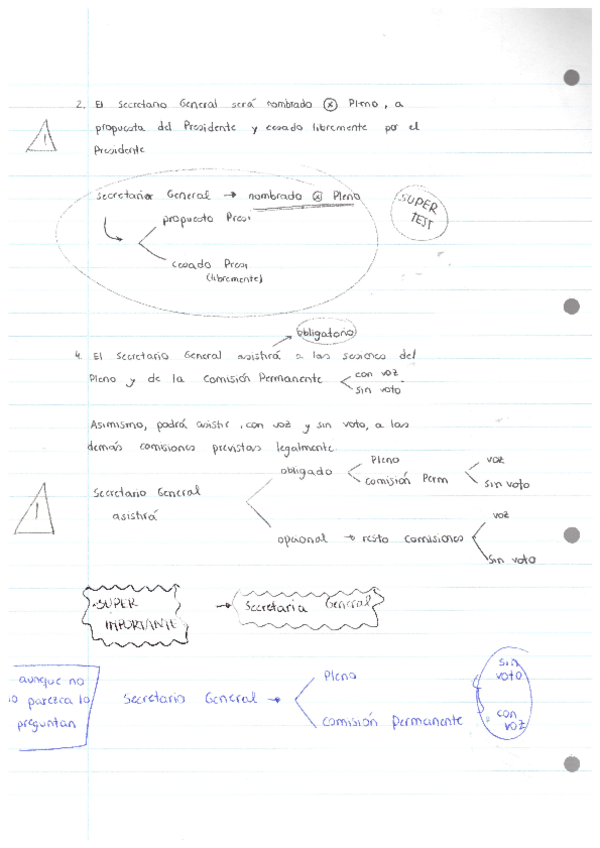 2. El Secretario General será nombrado ⊗ Pleno, a
propuesta del Presidente y cesado libremente por el
Presidente
!
Secretario General → nombrado ⊗ Pleno
propuesto Presi
cesado Presi
(libremente)
SUPER
TEST
obligatorio
4. El Secretario General asistirá a las sesiones del
Pleno y de la Comisión Permanente
con voz
sin voto
Asimismo, podrá asistir, con voz y sin voto, a las
demás comisiones previstas legalmente.
!
Secretario General
asistirá
obligado
Pleno
comisión Perm
voz
sin voto
opcional → resto comisiones
voz
sin voto
SUPER
IMPORTANTE
→ Secretaria General
aunque no
lo parezca lo
preguntan
Secretario General →
Pleno
comisión Permanente
sin
voto
con
voz